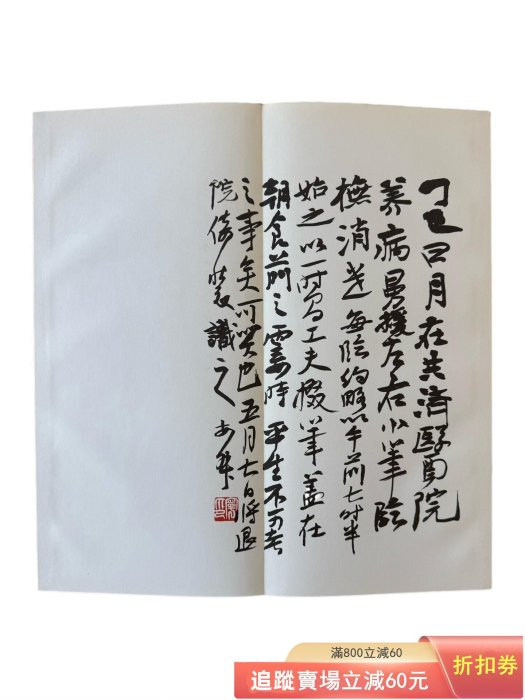 丁巳四月在共濟醫院
養病援左右小筆臨
橅消遣每臨約略以午前七時半
始之以一時工夫輟筆蓋在
朝食前之時平生不
之事矣可笑也五月七日將退
院倚裝識之
滿800立減60
追蹤賣場立減60元
折扣券